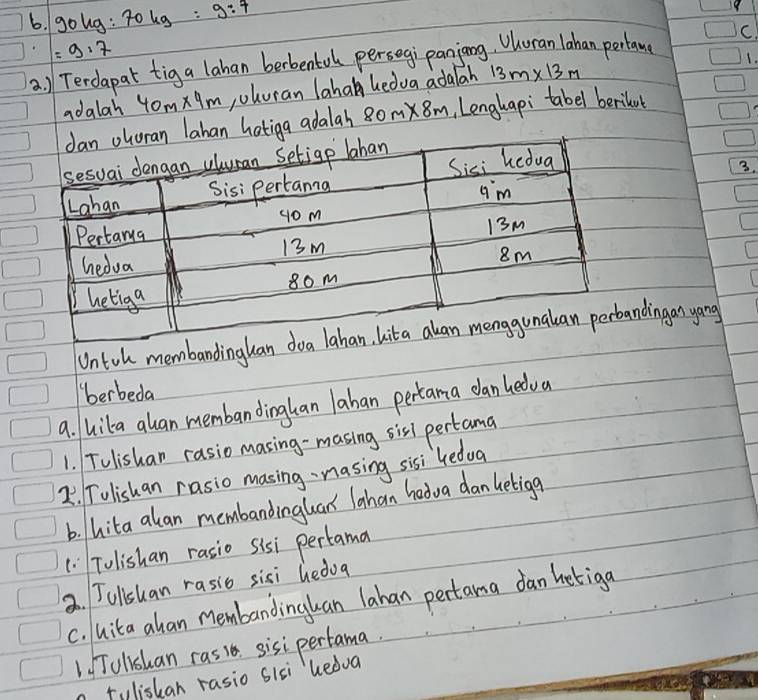 6. 90 kg : 70 kg = 9 : 7
= 9 : 7
2.) Terdapat tiga lahan berbentuk persegi panjang. Ukuran lahan pertama
adalah 40m x 4m, ukuran lahan kedua adalah 13m x 13m
dan ukuran lahan katiga adalah 80m x 8m, Lengkapi tabel berikut
sesuai dengan ukuran setiap lahan
Lahan Sisi Pertama Sisi kedua
Pertama 40 m 9 m
kedua 13 m 13 m
ketiga 80 m 8 m
Untuk membandingkan dua lahan, kita akan menggunakan perbandingan yang
berbeda
a. kita akan membandingkan lahan pertama dan kedua
1. Tuliskan rasio masing-masing sisi pertama
2. Tuliskan rasio masing-masing sisi kedua
b. kita akan membandingkan lahan kedua dan ketiga
1. Tuliskan rasio sisi pertama
2. Tuliskan rasio sisi kedua
c. kita akan membandingkan lahan pertama dan ketiga
1. Tuliskan rasio sisi pertama.
tuliskan rasio sisi kedua
C
1.
3.